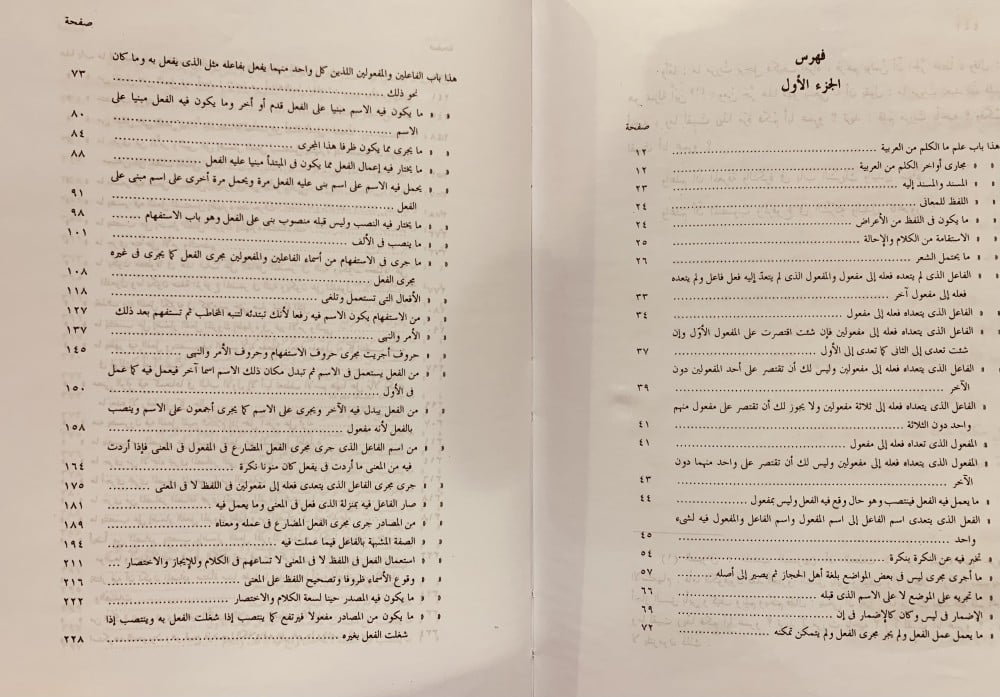 فهرس
الجزء الأول
صفحة
هذا باب علم ما الكلم من العربية ........ ١٢
« « مجارى أواخر الكلم من العربية ........ ١٢
« « المسند والمسند إليه ........ ٢٣
« « اللفظ للمعانى ........ ٢٤
« « ما يكون فى اللفظ من الأعراض ........ ٢٤
« « الاستقامة من الكلام والإحالة ........ ٢٥
« « ما يحتمل الشعر ........ ٢٦
« « الفاعل الذى لم يتعده فعله إلى مفعول والمفعول الذى لم يتعدّ إليه فعل فاعل ولم يتعده
فعله إلى مفعول آخر ........ ٣٣
« « الفاعل الذى يتعداه فعله إلى مفعول ........ ٣٤
« « الفاعل الذى يتعداه فعله إلى مفعولين فإن شئت اقتصرت على المفعول الأوّل وإن
شئت تعدى إلى الثانى كما تعدى إلى الأول ........ ٣٧
« « الفاعل الذى يتعداه فعله إلى مفعولين وليس لك أن تقتصر على أحد المفعولين دون
الآخر ........ ٣٩
« الفاعل الذى يتعداه فعله إلى ثلاثة مفعولين ولا يجوز لك أن تقتصر على مفعول منهم
واحد دون الثلاثة ........ ٤١
« المفعول الذى تعداه فعله إلى مفعول ........ ٤١
« المفعول الذى يتعداه فعله إلى مفعولين وليس لك أن تقتصر على واحد منهما دون
الآخر ........ ٤٣
« ما يعمل فيه الفعل فينتصب وهو حال وقع فيه الفعل وليس بمفعول ........ ٤٤
« الفعل الذى يتعدى اسم الفاعل إلى اسم المفعول واسم الفاعل والمفعول فيه لشىء
واحد ........ ٤٥
« تخبر فيه عن النكرة بنكرة ........ ٥٤
« ما أجرى مجرى ليس فى بعض المواضع بلغة أهل الحجاز ثم يصير إلى أصله ........ ٥٧
« ما تجريه على الموضع لا على الاسم الذى قبله ........ ٦٦
« الإضمار فى ليس وكان كالإضمار فى إن ........ ٦٩
« ما يعمل عمل الفعل ولم يجر مجرى الفعل ولم يتمكن تمكنه ........ ٧٢
صفحة
هذا باب الفاعلين والمفعولين اللذين كل واحد منهما يفعل بفاعله مثل الذى يفعل به وما كان
نحو ذلك ........ ٧٣
« « ما يكون فيه الاسم مبنيا على الفعل قدم أو أخر وما يكون فيه الفعل مبنيا على
الاسم ........ ٨٠
« « ما يجرى مما يكون ظرفا هذا المجرى ........ ٨٤
« « ما يختار فيه إعمال الفعل مما يكون فى المبتدأ مبنيا عليه الفعل ........ ٨٨
« « يحمل فيه الاسم على اسم بنى عليه الفعل مرة ويحمل مرة أخرى على اسم مبنى على
الفعل ........ ٩١
« « ما يختار فيه النصب وليس قبله منصوب بنى على الفعل وهو باب الاستفهام ........ ٩٨
« « ما ينصب فى الألف ........ ١٠١
« « ما جرى فى الاستفهام من أسماء الفاعلين والمفعولين مجرى الفعل كما يجرى فى غيره
مجرى الفعل ........ ١٠٨
« « الأفعال التى تستعمل وتلغى ........ ١١٨
« « من الاستفهام يكون الاسم فيه رفعا لأنك تبتدئه لتنبه المخاطب ثم تستفهم بعد ذلك ١٢٧
« « الأمر والنهى ........ ١٣٧
« « حروف أجريت مجرى حروف الاستفهام وحروف الأمر والنهى ........ ١٤٥
« « من الفعل يستعمل فى الاسم ثم تبدل مكان ذلك الاسم اسما آخر فيعمل فيه كما عمل
فى الأول ........ ١٥٠
« « من الفعل يبدل فيه الآخر ويجرى على الاسم كما يجرى أجمعون على الاسم وينصب
بالفعل لأنه مفعول ........ ١٥٨
« « من اسم الفاعل الذى جرى مجرى الفعل المضارع فى المفعول فى المعنى فإذا أردت
فيه من المعنى ما أردت فى يفعل كان منونا نكرة ........ ١٦٤
« « جرى مجرى الفاعل الذى يتعدى فعله إلى مفعولين فى اللفظ لا فى المعنى ........ ١٧٥
« « صار الفاعل فيه بمنزلة الذى فعل فى المعنى وما يعمل فيه ........ ١٨١
« « من المصادر جرى مجرى الفعل المضارع فى عمله ومعناه ........ ١٨٩
« « الصفة المشبهة بالفاعل فيما عملت فيه ........ ١٩٤
« « استعمال الفعل فى اللفظ لا فى المعنى لا تساعهم فى الكلام وللإيجاز والاختصار ... ٢١١
« « وقوع الأسماء ظروفا وتصحيح اللفظ على المعنى ........ ٢١٦
« « ما يكون فيه المصدر حينا لسعة الكلام والاختصار ........ ٢٢٢
« « ما يكون من المصادر مفعولا فيرتفع كما ينتصب إذا شغلت الفعل به وينتصب إذا
شغلت الفعل بغيره ........ ٢٢٨